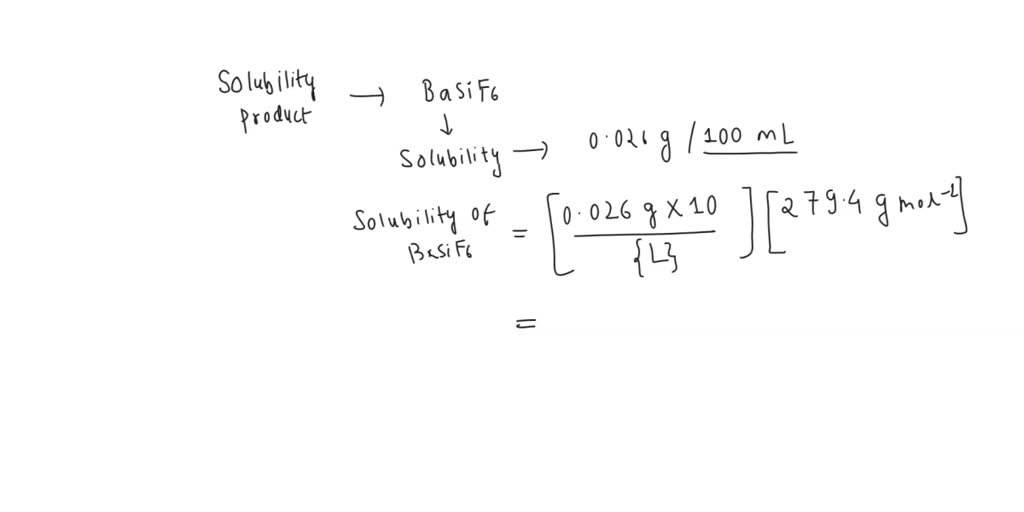 Solubility product → BaSiF6
↓
Solubility → 0.026 g / 100 mL
Solubility of BaSiF6 = [0.026 g X 10 / {L}] [279.4 g mol-1]
=